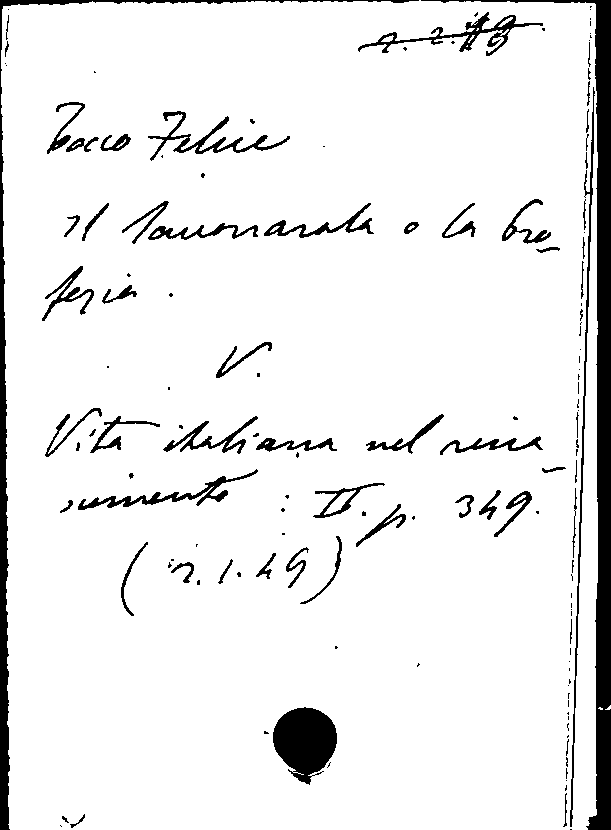 r. 2. 13
Tocco Felice
Il Savonarola e la Pro-
fezia.
V.
Vita italiana nel rina-
scimento : II. p. 349.
(r. 1. 49)